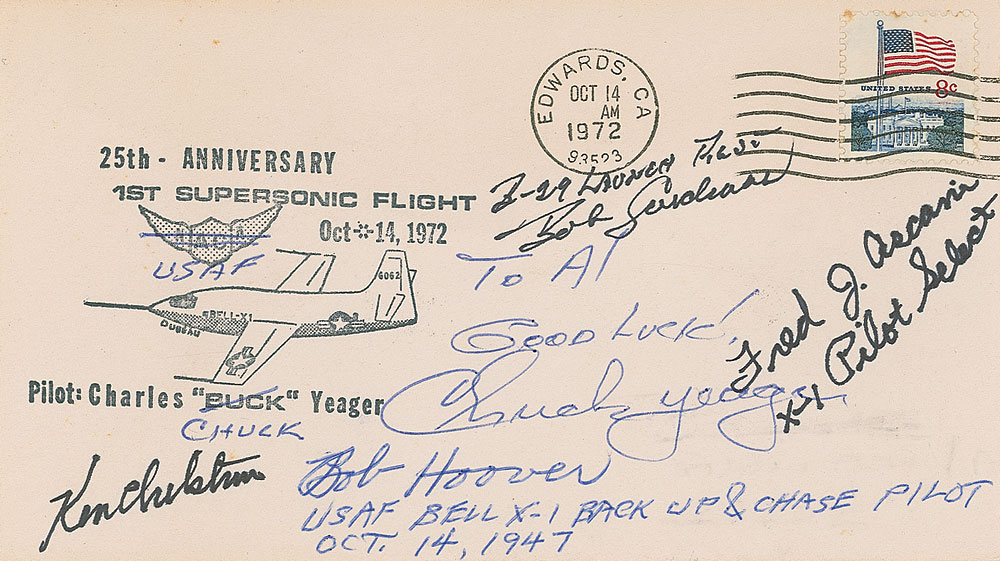 UNITED STATES 8c
EDWARDS, CA
OCT 14
AM
1972
93523
25th - ANNIVERSARY
1ST SUPERSONIC FLIGHT
Oct 14, 1972
USAF
6062
BELL-X1
Pilot: Charles "BUCK" Yeager
CHUCK
B-29 LAUNCH PILOT
Bob Cardenas
To Al
GOOD LUCK,
Chuck Yeager
Fred J. Ascani
X-1 Pilot Select
Ken Chilstrom
Bob Hoover
USAF BELL X-1 BACK UP & CHASE PILOT
OCT. 14, 1947